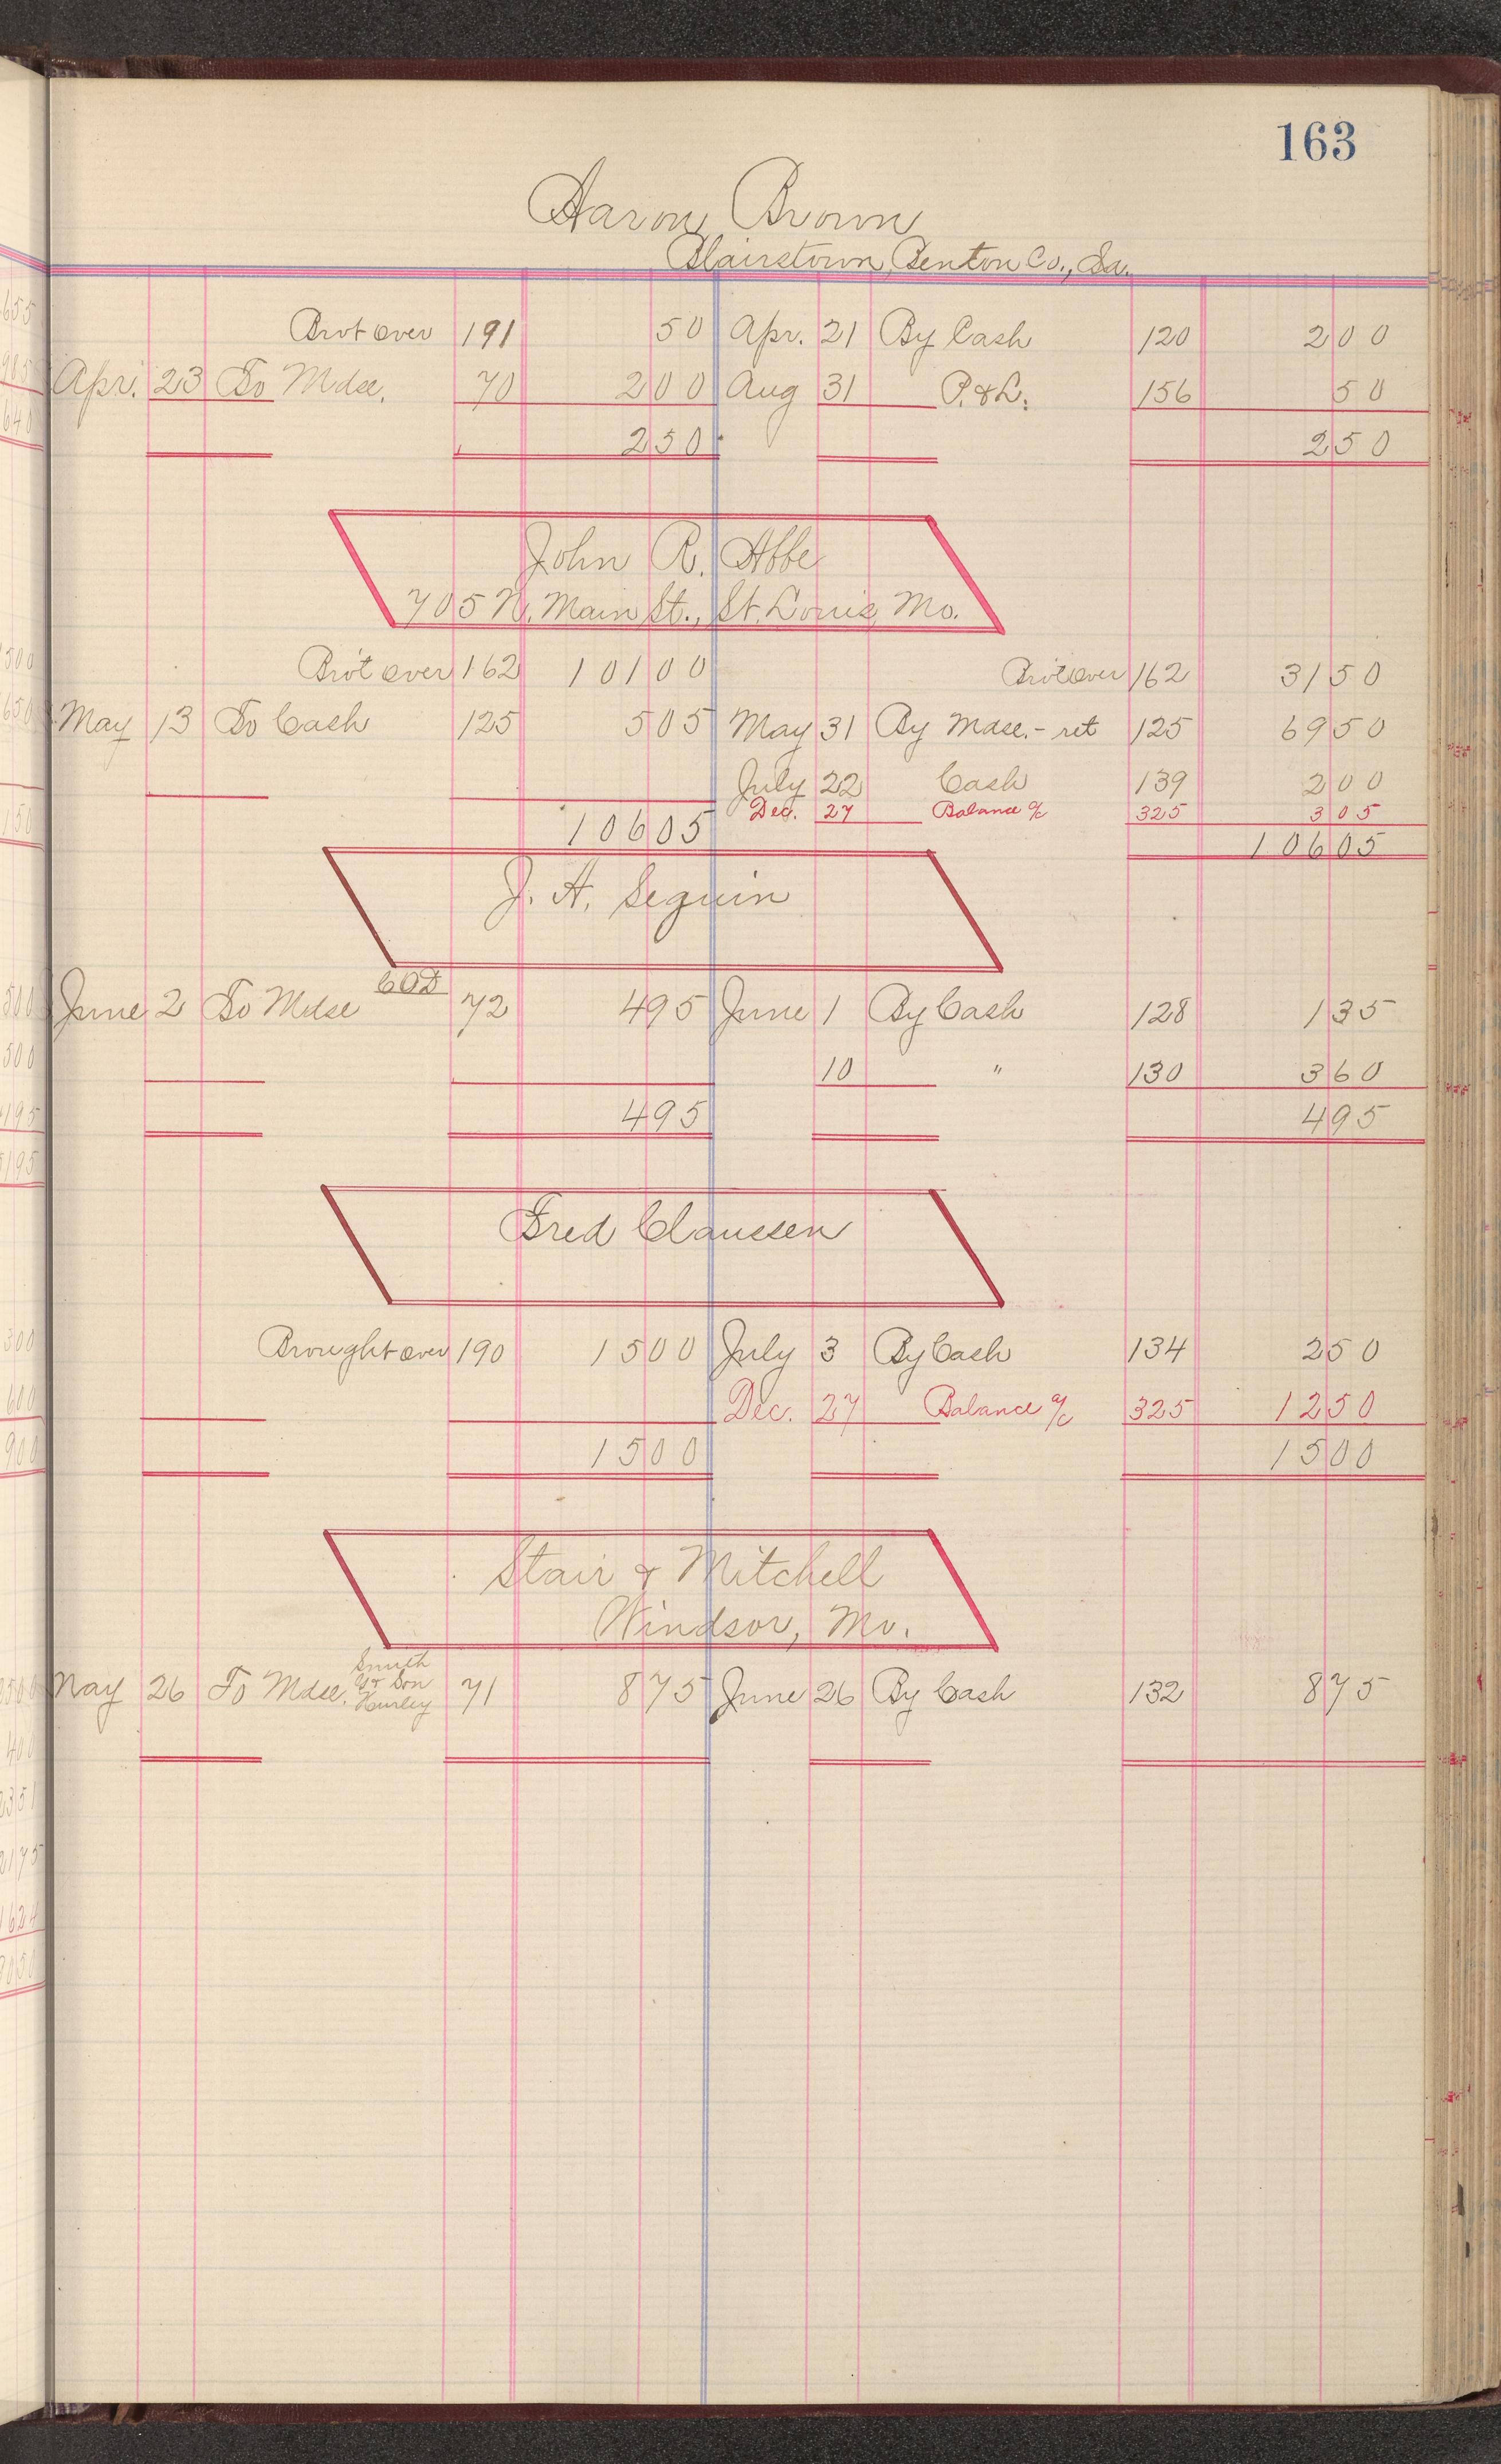 163
Aaron Brown
Blairstown, Benton Co., Ia.
Brot over 191 50 Apr. 21 By Cash 120 200
Apr. 23 To Mdse. 70 200 Aug 31 P. & L. 156 50
250 250
John R. Abbe
705 N. Main St., St. Louis, Mo.
Bro't over 162 10100 Bro't over 162 3150
May 13 To Cash 125 505 May 31 By Mdse. - ret 125 6950
July 22 Cash 139 200
Dec. 27 Balance a/c 325 305
10605 10605
J. A. Seguin
June 2 To Mdse COD 72 495 June 1 By Cash 128 135
10 " 130 360
495 495
Fred Claussen
Brought over 190 1500 July 3 By Cash 134 250
Dec. 27 Balance a/c 325 1250
1500 1500
Stair & Mitchell
Windsor, Mo.
May 26 To Mdse. Smith & Son Hurley 71 875 June 26 By Cash 132 875